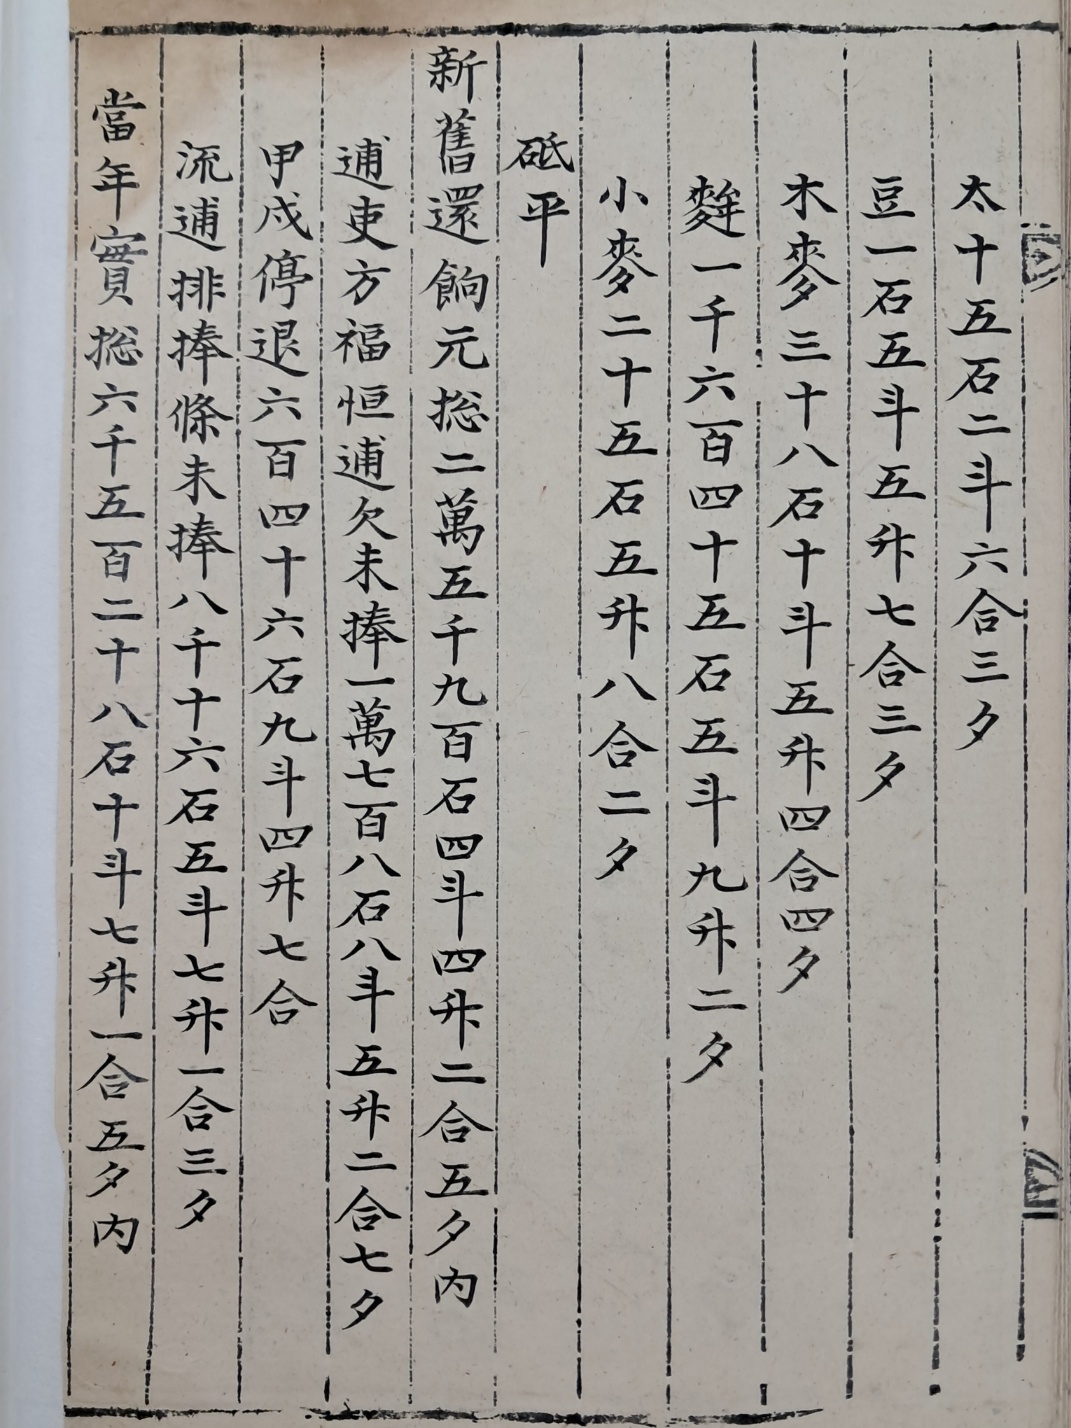 太十五石二斗六合三夕
豆一石五斗五升七合三夕
木麥三十八石十斗五升四合四夕
麰一千六百四十五石五斗九升二夕
小麥二十五石五升八合二夕
砥平
新舊還餉元摠二萬五千九百石四斗四升二合五夕內
逋吏方福恒逋欠未捧一萬七百八石八斗五升二合七夕
甲戌停退六百四十六石九斗四升七合
流逋排捧條未捧八千十六石五斗七升一合三夕
當年實摠六千五百二十八石十斗七升一合五夕內